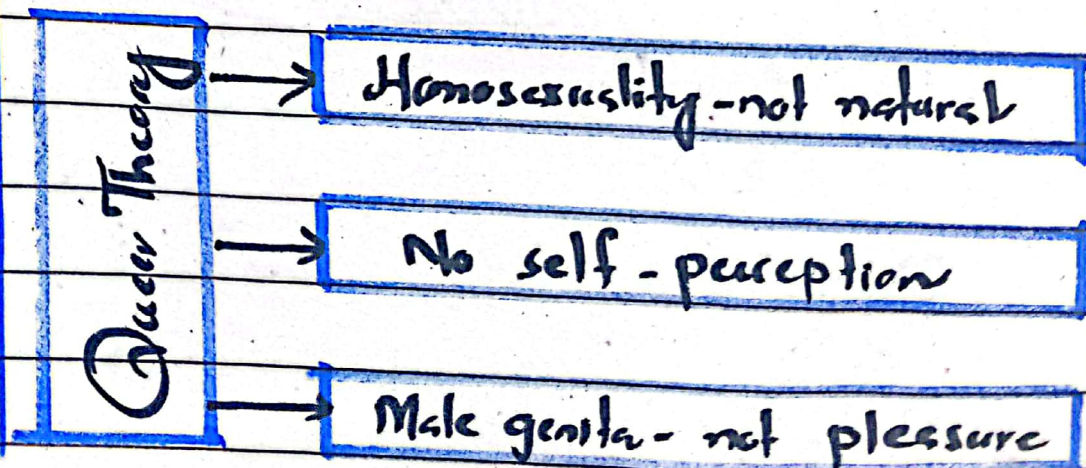 Queer Theory
Homosexuality - not natural
No self - perception
Male genita - not pleasure